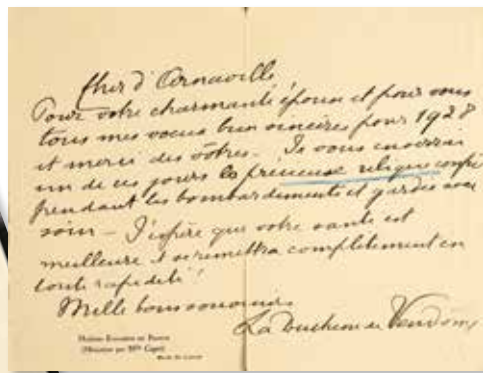 Cher d'Arnaville
Pour votre charmante épouse et pour vous
tous mes voeux bien sincères pour 1928
et merci des vôtres. Je vous enverrai
un de ces jours la précieuse relique confiée
pendant les bombardements et gardée avec
soin – J'espère que votre santé est
meilleure et se remettra complètement en
toute rapidité!
Mille bons souvenirs
La Duchesse de Vendôme